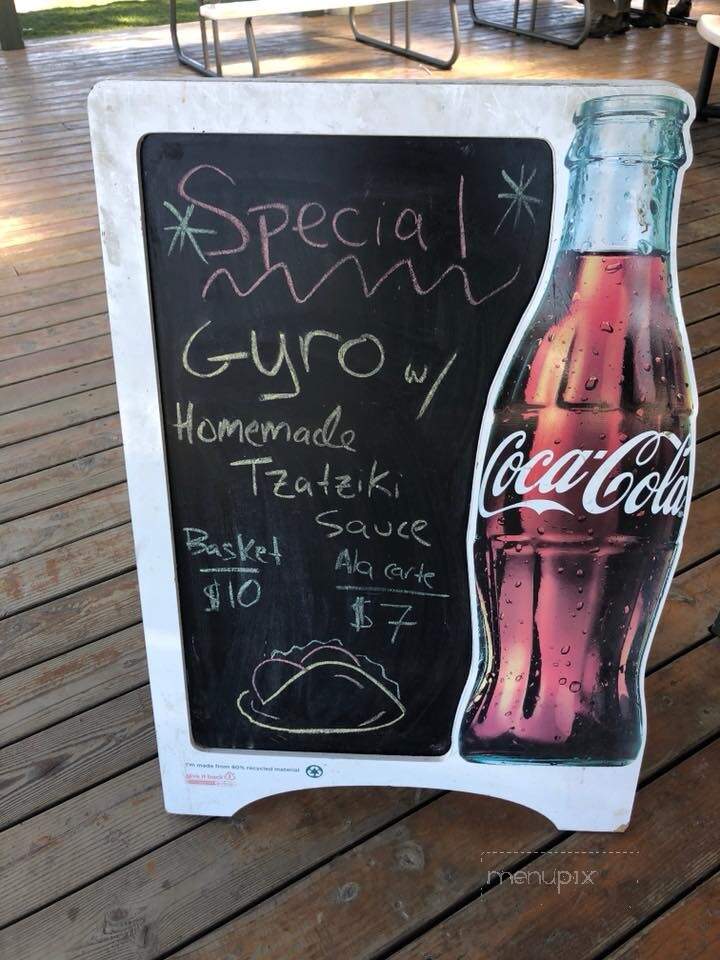 Special
Gyro w/
Homemade
Tzatziki
Sauce
Basket
$10
Ala carte
$7
Coca-Cola
I'm made from 60% recycled material
give it back
menupix